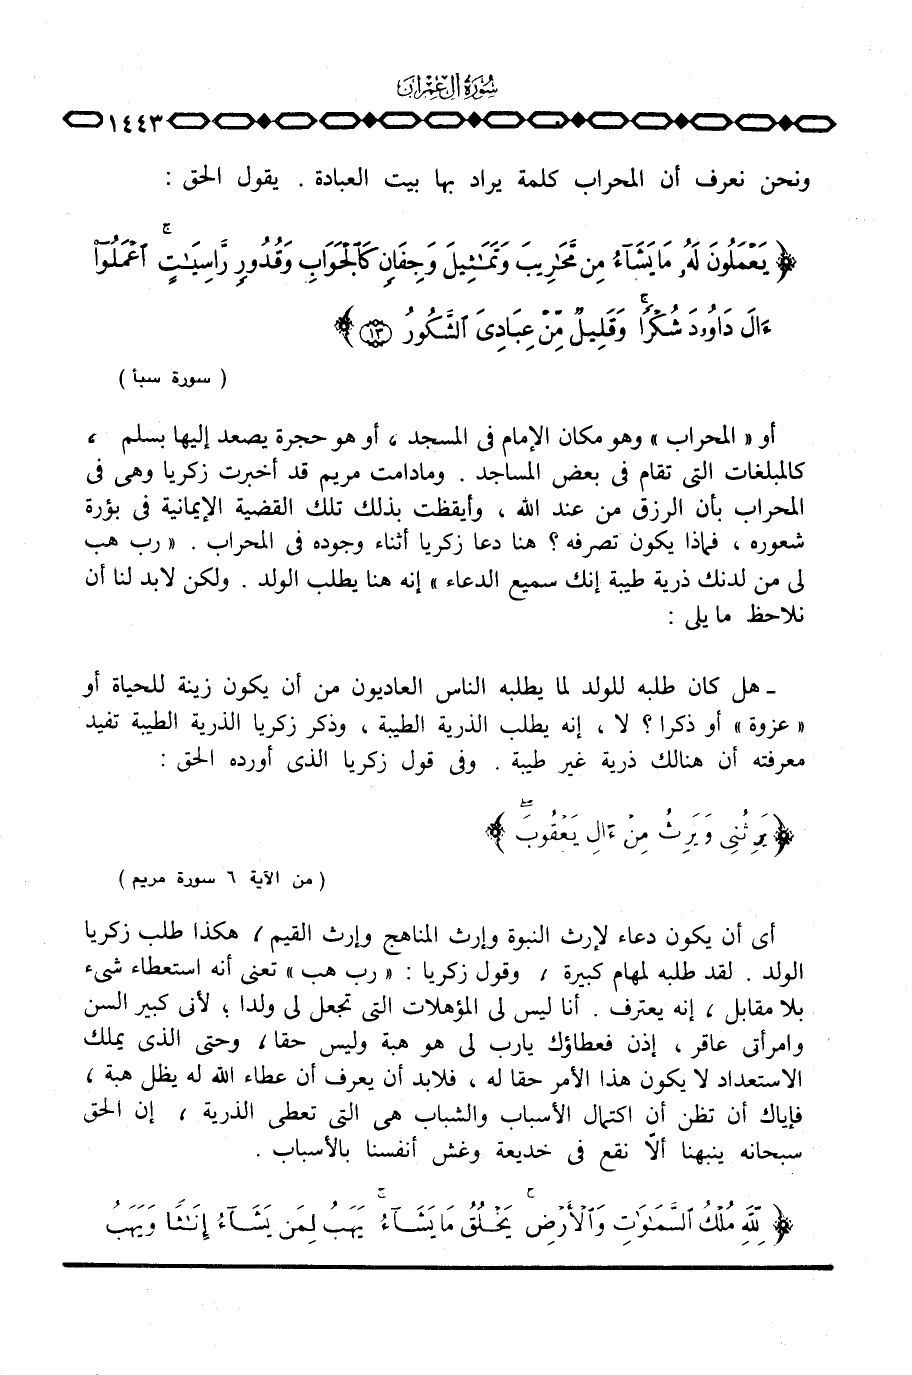 سُورَةُ آلِ عِمْرَانَ
١٤٤٣
ونحن نعرف أن المحراب كلمة يراد بها بيت العبادة . يقول الحق :
﴿ يَعْمَلُونَ لَهُۥ مَا يَشَآءُ مِن مَّحَٰرِيبَ وَتَمَٰثِيلَ وَجِفَانٍ كَٱلْجَوَابِ وَقُدُورٍ رَّاسِيَٰتٍ ۚ ٱعْمَلُوٓا۟
ءَالَ دَاوُۥدَ شُكْرًا ۚ وَقَلِيلٌ مِّنْ عِبَادِىَ ٱلشَّكُورُ ١٣ ﴾
( سورة سبأ )
أو « المحراب » وهو مكان الإمام فى المسجد ، أو هو حجرة يصعد إليها بسلم ،
كالمبلغات التى تقام فى بعض المساجد . ومادامت مريم قد أخبرت زكريا وهى فى
المحراب بأن الرزق من عند الله ، وأيقظت بذلك تلك القضية الإيمانية فى بؤرة
شعوره ، فماذا يكون تصرفه ؟ هنا دعا زكريا أثناء وجوده فى المحراب . « رب هب
لى من لدنك ذرية طيبة إنك سميع الدعاء » إنه هنا يطلب الولد . ولكن لابد لنا أن
نلاحظ ما يلى :
ـ هل كان طلبه للولد لما يطلبه الناس العاديون من أن يكون زينة للحياة أو
« عزوة » أو ذكرا ؟ لا ، إنه يطلب الذرية الطيبة ، وذكر زكريا الذرية الطيبة تفيد
معرفته أن هنالك ذرية غير طيبة . وفى قول زكريا الذى أورده الحق :
﴿ يَرِثُنِى وَيَرِثُ مِنْ ءَالِ يَعْقُوبَ ۖ ﴾
( من الآية ٦ سورة مريم )
أى أن يكون دعاء لإرث النبوة وإرث المناهج وإرث القيم ، هكذا طلب زكريا
الولد . لقد طلبه لمهام كبيرة ، وقول زكريا : « رب هب » تعنى أنه استعطاء شىء
بلا مقابل ، إنه يعترف . أنا ليس لى المؤهلات التى تجعل لى ولدا ؛ لأنى كبير السن
وامرأتى عاقر ، إذن فعطاؤك يارب لى هو هبة وليس حقا ، وحتى الذى يملك
الاستعداد لا يكون هذا الأمر حقا له ، فلابد أن يعرف أن عطاء الله له يظل هبة ،
فإياك أن تظن أن اكتمال الأسباب والشباب هى التى تعطى الذرية ، إن الحق
سبحانه ينبهنا ألاّ نقع فى خديعة وغش أنفسنا بالأسباب .
﴿ لِلَّهِ مُلْكُ ٱلسَّمَٰوَٰتِ وَٱلْأَرْضِ ۚ يَخْلُقُ مَا يَشَآءُ ۚ يَهَبُ لِمَن يَشَآءُ إِنَٰثًا وَيَهَبُ